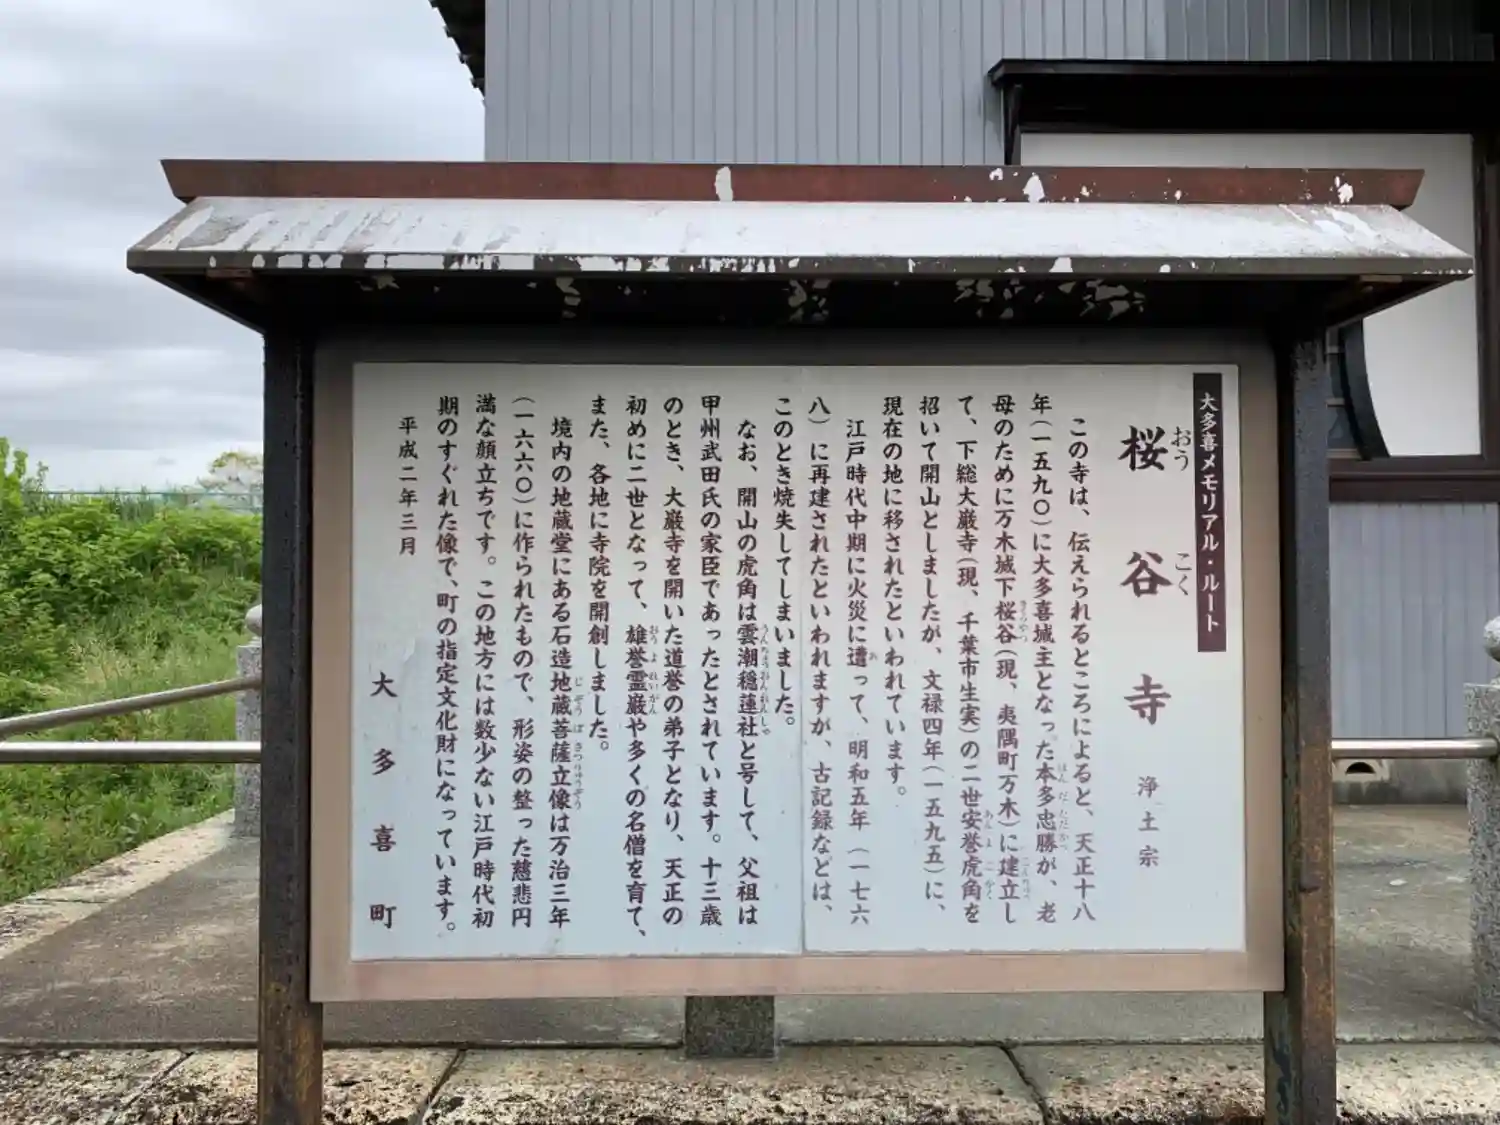 大多喜メモリアル・ルート
桜谷寺 浄土宗
おうこく
この寺は、伝えられるところによると、天正十八
年(一五九〇)に大多喜城主となった本多忠勝が、老
母のために万木城下桜谷(現、夷隅町万木)に建立し
て、下総大巌寺(現、千葉市生実)の二世安誉虎角を
招いて開山としましたが、文禄四年(一五九五)に、
現在の地に移されたといわれています。
江戸時代中期に火災に遭って、明和五年(一七六
八)に再建されたといわれますが、古記録などは、
このとき焼失してしまいました。
なお、開山の虎角は雲潮穏蓮社と号して、父祖は
甲州武田氏の家臣であったとされています。十三歳
のとき、大巌寺を開いた道誉の弟子となり、天正の
初めに二世となって、雄誉霊巌や多くの名僧を育て、
また、各地に寺院を開創しました。
境内の地蔵堂にある石造地蔵菩薩立像は万治三年
(一六六〇)に作られたもので、形姿の整った慈悲円
満な顔立ちです。この地方には数少ない江戸時代初
期のすぐれた像で、町の指定文化財になっています。
平成二年三月
大多喜町